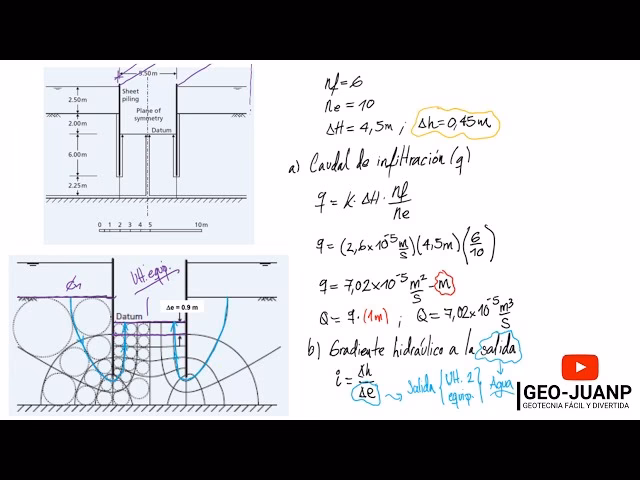 5.50m
Sheet
piling
2.50m
Plane of
symmetry
2.00m
Datum
6.00m
2.25m
0 1 2 3 4 5 10m
Uh. equip.
Δe = 0.9 m
Datum
nf = 6
ne = 10
ΔH = 4,5m ; Δh = 0,45m
a) Caudal de infiltración (q)
q = k · ΔH · nf/ne
q = (2,6x10⁻⁵ m/s)(4,5m)(6/10)
q = 7,02x10⁻⁵ m²/s - m
Q = q · (1m) ; Q = 7,02x10⁻⁵ m³/s
b) Gradiente hidráulico a la salida
i = Δh/Δe
Salida {Uh. 2 equip.} Agua
GEO-JUANP
GEOTECNIA FÁCIL Y DIVERTIDA